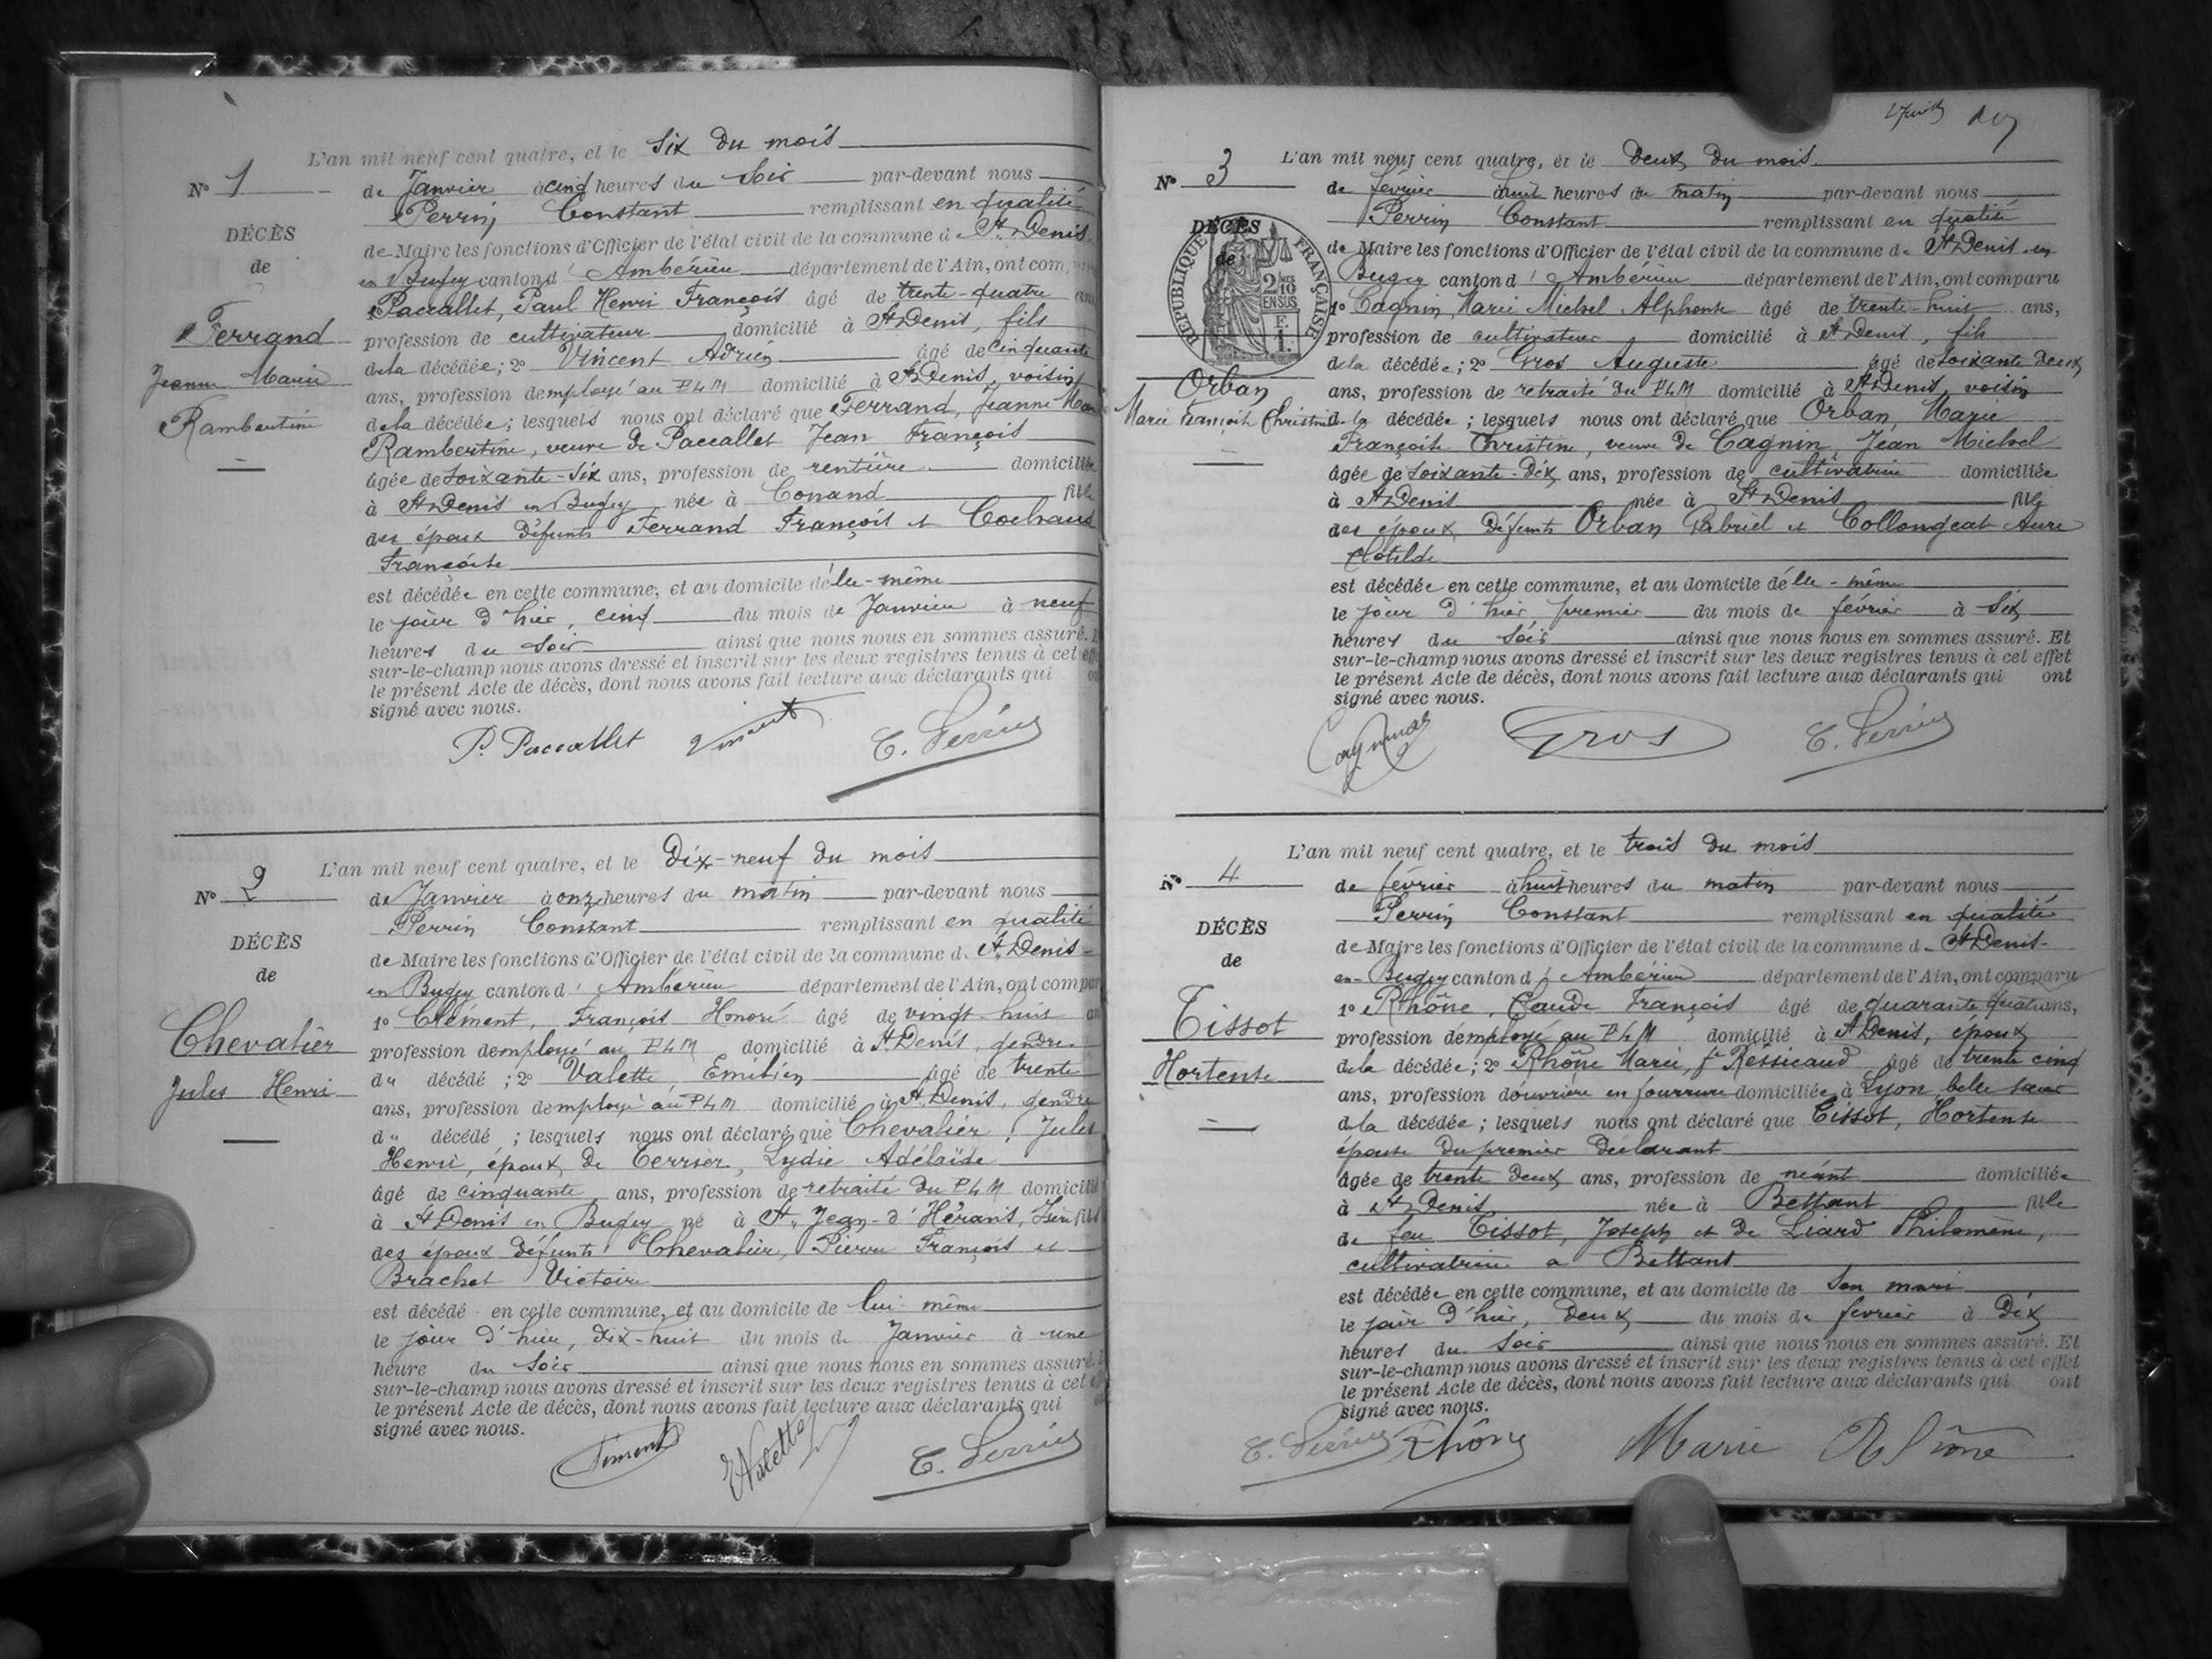 L'an mil neuf cent quatre, et le six du mois
N° 1
de Janvier à cinq heures du soir par-devant nous
Perrin Constant remplissant en qualité
DÉCÈS
de Maire les fonctions d'Officier de l'état civil de la commune d St Denis
de
en Bugey canton d' Ambérieu département de l'Ain, ont com
Paccallet, Paul Henri François âgé de trente-quatre
Ferrand
profession de cultivateur domicilié à St Denis, fils
de la décédée; 2° Vincent Adrien âgé de cinquante
Jeanne Marie
ans, profession d'employé au PLM domicilié à St Denis, voisin
Rambertine
de la décédée; lesquels nous ont déclaré que Ferrand, Jeanne
Rambertine, veuve de Paccallet Jean François
âgée de soixante-six ans, profession de rentière domiciliée
à St Denis en Bugey née à Conand fille
des époux défunts Ferrand François et
Françoise
est décédée en cette commune, et au domicile d'elle-même
le jour d'hier, cinq du mois de Janvier à neuf
heures du soir ainsi que nous nous en sommes assuré.
sur-le-champ nous avons dressé et inscrit sur les deux registres tenus à cet
le présent Acte de décès, dont nous avons fait lecture aux déclarants qui
signé avec nous.
P. Paccallet Vincent C. Perrin
L'an mil neuf cent quatre, et le Dix-neuf du mois
N° 2
de Janvier à onze heures du matin par-devant nous
Perrin Constant remplissant en qualité
DÉCÈS
de Maire les fonctions d'Officier de l'état civil de la commune d. St Denis-
de
en Bugey canton d' Ambérieu département de l'Ain, ont compar
1° Clément, François Honoré âgé de vingt-huit
Chevalier
profession d'employé au PLM domicilié à St Denis, gendre
du décédé; 2° Valette, Emilien âgé de trente
Jules Henri
ans, profession d'employé au PLM domicilié à St Denis, gendre
du décédé; lesquels nous ont déclaré que Chevalier, Jules
Henri, époux de Terrier, Lydie Adélaïde
âgé de cinquante ans, profession de retraité du PLM domicilié
à St Denis en Bugey né à St Jean-d'Hérans, Isère fils
des époux défunts Chevalier, Pierre François et
Brachet Victoire
est décédé en cette commune, et au domicile de lui-même
le jour d'hier, dix-huit du mois de Janvier à une
heure du soir ainsi que nous nous en sommes assuré.
sur-le-champ nous avons dressé et inscrit sur les deux registres tenus à cet
le présent Acte de décès, dont nous avons fait lecture aux déclarants qui
signé avec nous.
Clément EValette C. Perrin
L'an mil neuf cent quatre, et le Deux du mois
N° 3
de février à huit heures du matin par-devant nous
Perrin Constant remplissant en qualité
DÉCÈS
de Maire les fonctions d'Officier de l'état civil de la commune d. St Denis-en
de
RÉPUBLIQUE FRANÇAISE
2/10
EN SUS
Bugey canton d' Ambérieu département de l'Ain, ont comparu
1° Cagnin, Marie Michel Alphonse âgé de trente-huit ans,
profession de cultivateur domicilié à St Denis, fils
de la décédée; 2° Gros Auguste âgé de soixante deux
Orban
ans, profession de retraité du PLM domicilié à St Denis, voisin
Marie Françoise Christine
de la décédée; lesquels nous ont déclaré que Orban, Marie
Françoise Christine, veuve de Cagnin, Jean Michel
âgée de soixante-dix ans, profession de cultivatrice domiciliée
à St Denis née à St Denis fille
des époux défunts Orban Gabriel et Collomgeat
Clotilde
est décédée en cette commune, et au domicile d'elle-même
le jour d'hier premier du mois de février à six
heures du soir ainsi que nous nous en sommes assuré. Et
sur-le-champ nous avons dressé et inscrit sur les deux registres tenus à cet effet
le présent Acte de décès, dont nous avons fait lecture aux déclarants qui ont
signé avec nous.
Gros C. Perrin
L'an mil neuf cent quatre, et le trois du mois
N° 4
de février à huit heures du matin par-devant nous
Perrin Constant remplissant en qualité
DÉCÈS
de Maire les fonctions d'Officier de l'état civil de la commune d. St Denis-
de
en-Bugey canton d' Ambérieu département de l'Ain, ont comparu
1° Rhône, Claude François âgé de quarante quatre ans,
Tissot
profession d'employé au PLM domicilié à St Denis, époux
Hortense
de la décédée; 2° Rhône Marie, fe Ressicaud âgé de trente cinq
ans, profession d'ouvrière en fourrure domiciliée à Lyon, belle sœur
de la décédée; lesquels nous ont déclaré que Tissot, Hortense
épouse du premier déclarant
âgée de trente deux ans, profession de néant domiciliée
à St Denis née à Bettant fille
de feu Tissot, Joseph et de Liard Philomène,
cultivatrice à Bettant
est décédée en cette commune, et au domicile de son mari
le jour d'hier, deux du mois de fevrier à dix
heures du soir ainsi que nous nous en sommes assuré. Et
sur-le-champ nous avons dressé et inscrit sur les deux registres tenus à cet effet
le présent Acte de décès, dont nous avons fait lecture aux déclarants qui ont
signé avec nous.
C. Perrin Rhône Marie Rhône